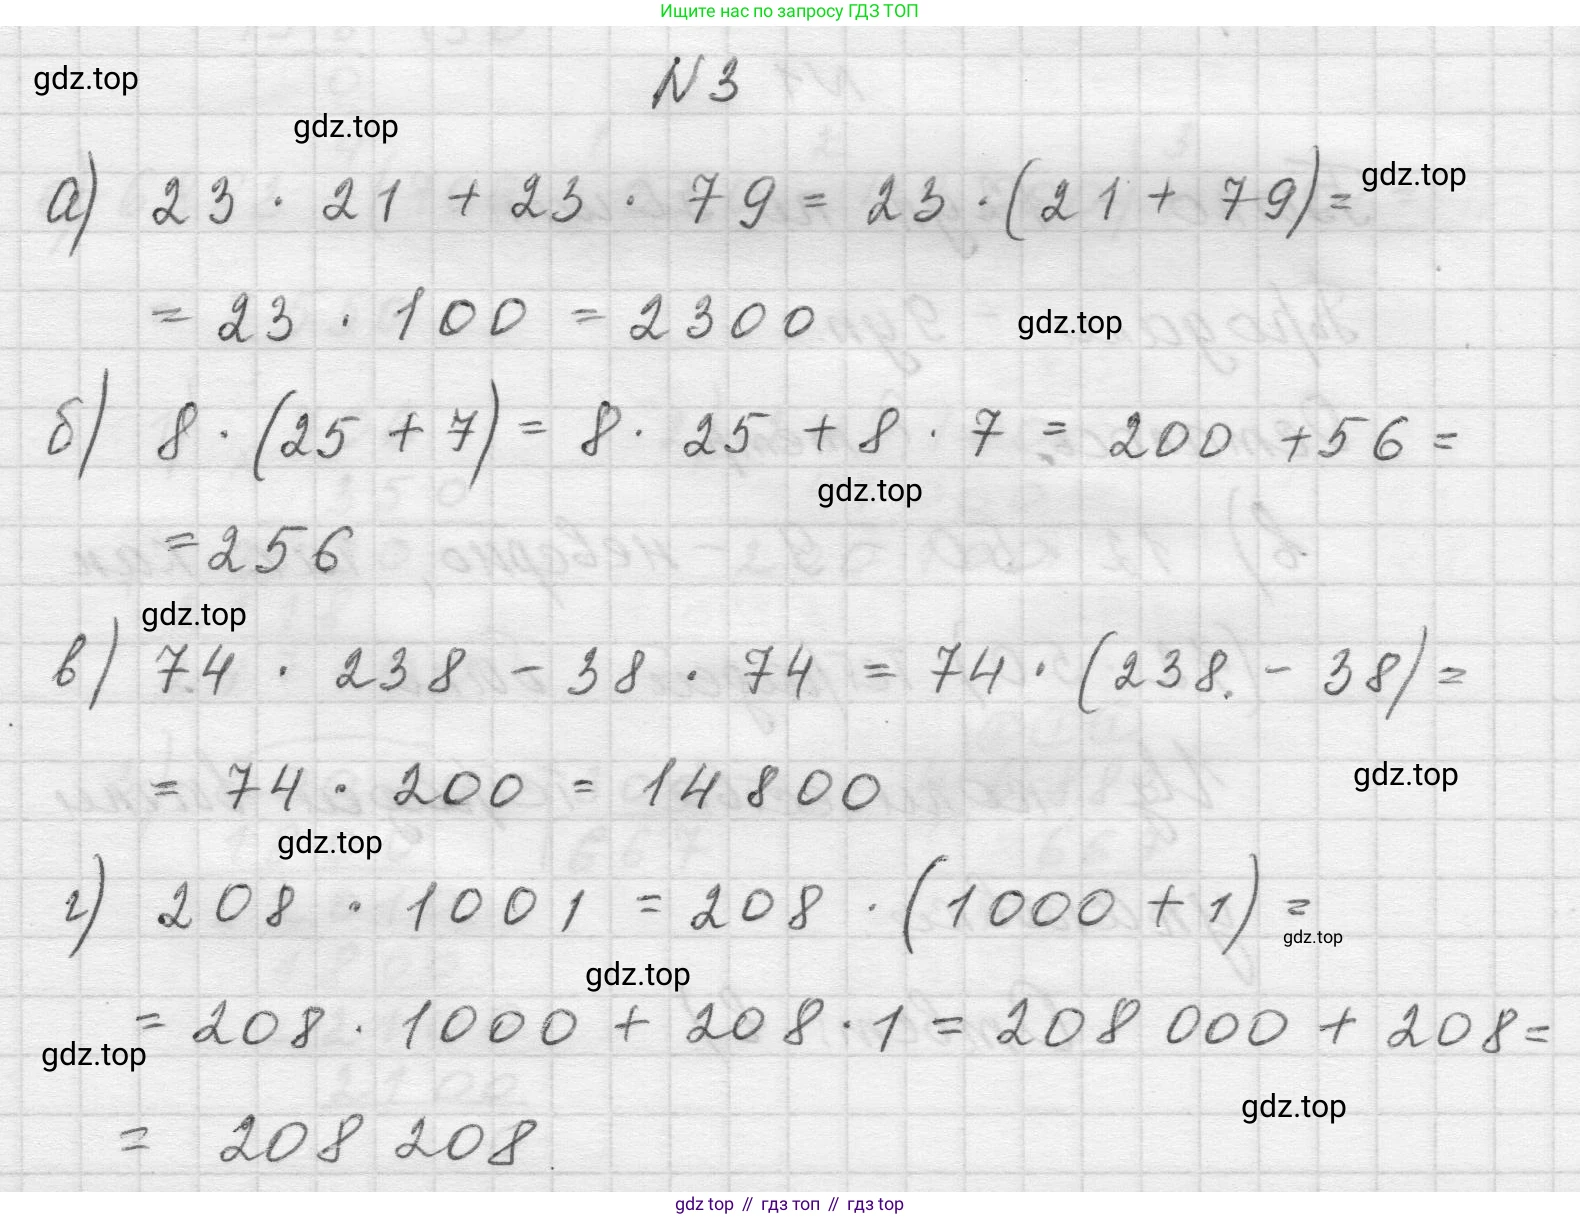 Ищите нас по запросу ГДЗ ТОП
N 3
gdz.top
gdz.top
а) 23 · 21 + 23 · 79 = 23 · (21 + 79) =
gdz.top
= 23 · 100 = 2300
gdz.top
б) 8 · (25 + 7) = 8 · 25 + 8 · 7 = 200 + 56 =
gdz.top
= 256
gdz.top
в) 74 · 238 - 38 · 74 = 74 · (238 - 38) =
= 74 · 200 = 14800
gdz.top
gdz.top
г) 208 · 1001 = 208 · (1000 + 1) =
gdz.top
gdz.top
= 208 · 1000 + 208 · 1 = 208 000 + 208 =
gdz.top
gdz.top
= 208 208
gdz top // гдз топ // гдз top